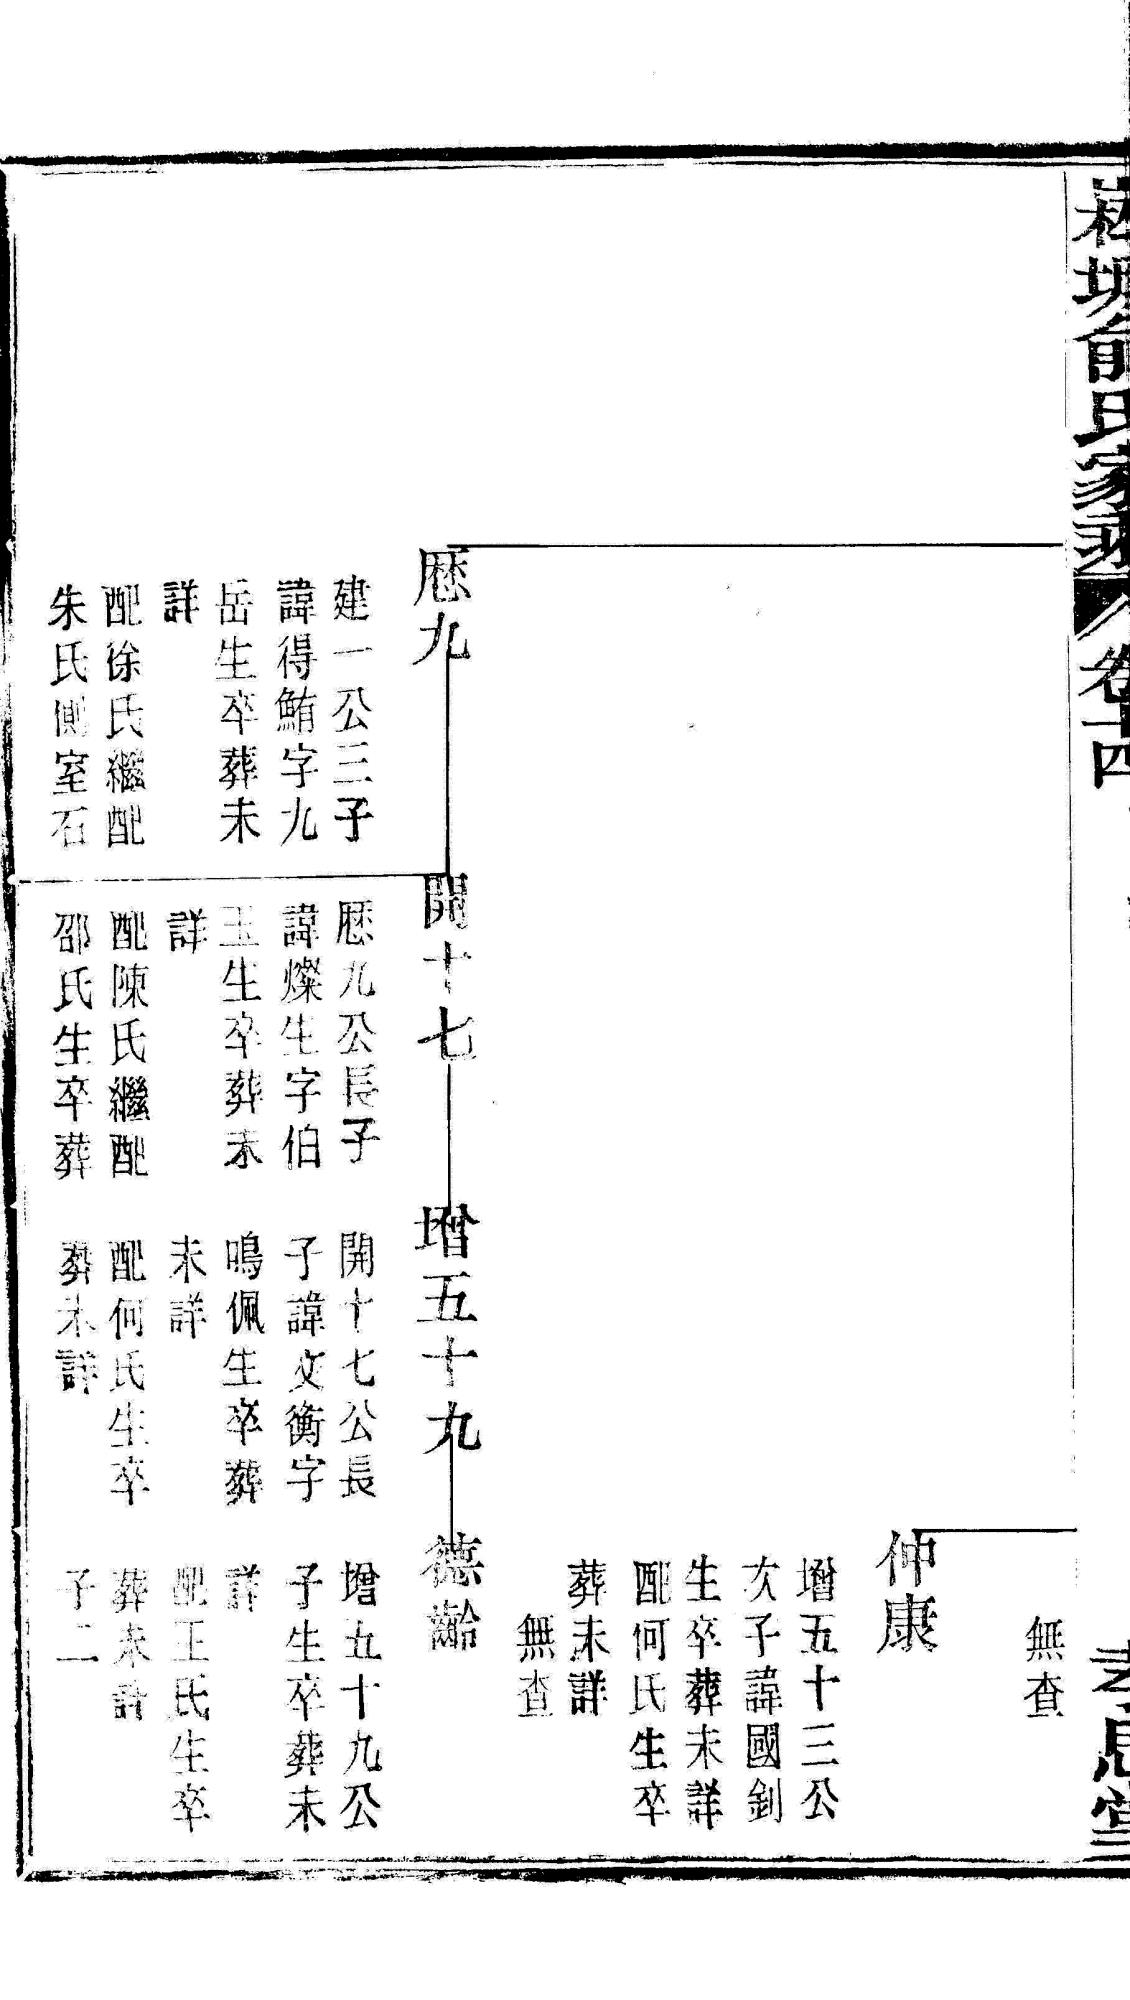 塘俞氏家乘 卷十四
孝思堂
無查
仲康
增五十三公
次子諱國釗
生卒葬未詳
配何氏生卒
葬未詳
無查
歷九
建一公三子
諱得鮪字九
岳生卒葬未
詳
配徐氏繼配
朱氏側室石
開十七
歷九公長子
諱燦生字伯
玉生卒葬未
詳
配陳氏繼配
邵氏生卒葬
增五十九
開十七公長
子諱文衡字
鳴佩生卒葬
未詳
配何氏生卒
葬未詳
德齡
增五十九公
子生卒葬未
詳
配王氏生卒
葬未詳
子二